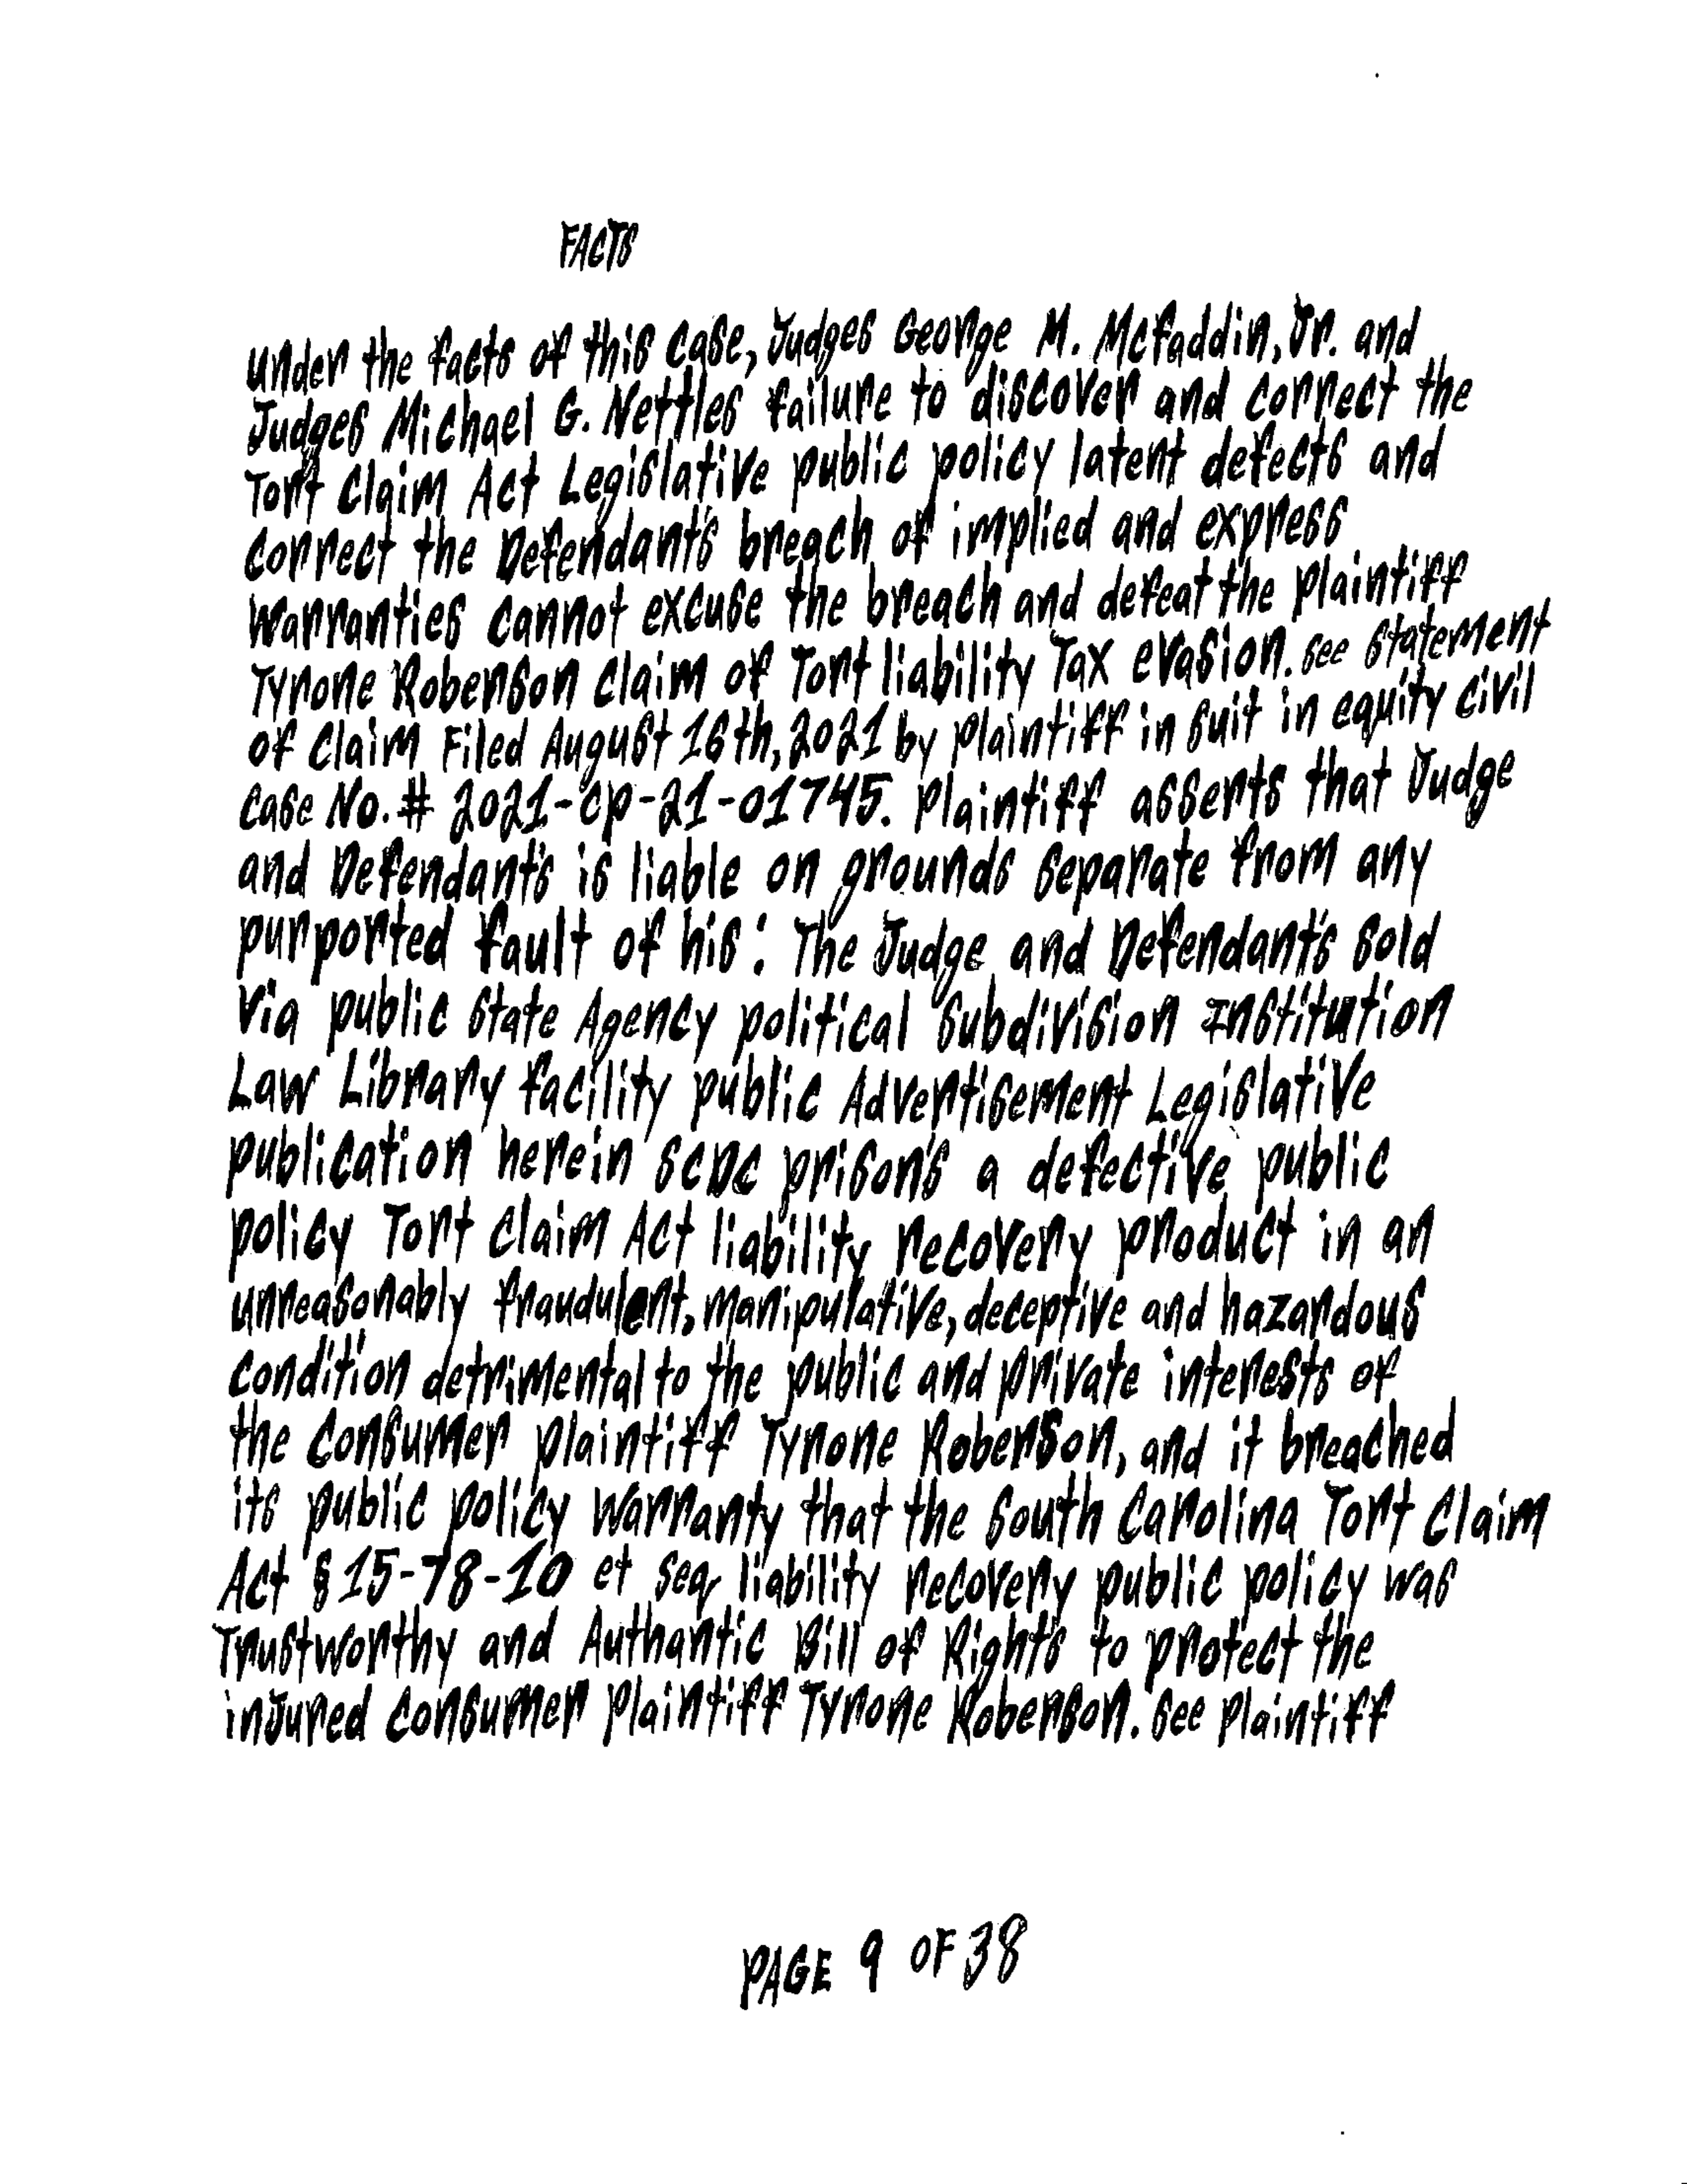 FACTS
under the facts of this case, Judges George M. McFaddin, Jr. and
Judges Michael G. Nettles failure to discover and correct the
Tort Claim Act Legislative public policy latent defects and
correct the Defendant's breach of implied and express
warranties cannot excuse the breach and defeat the plaintiff
Tyrone Roberson claim of Tort liability Tax evasion. see statement
of claim Filed August 16th, 2021 by plaintiff in suit in equity civil
case No. # 2021-cp-21-01745. Plaintiff asserts that Judge
and Defendant's is liable on grounds separate from any
purported fault of his: The Judge and Defendant's sold
via public state Agency political subdivision Institution
Law Library facility public Advertisement Legislative
publication herein SCDC prison's a defective public
policy Tort claim Act liability recovery product in an
unreasonably fraudulent, manipulative, deceptive and hazardous
condition detrimental to the public and private interests of
the consumer plaintiff Tyrone Roberson, and it breached
its public policy warranty that the South Carolina Tort Claim
Act § 15-78-10 et seq, liability recovery public policy was
Trustworthy and Authantic Bill of Rights to protect the
injured consumer plaintiff Tyrone Roberson. See Plaintiff
PAGE 9 OF 38